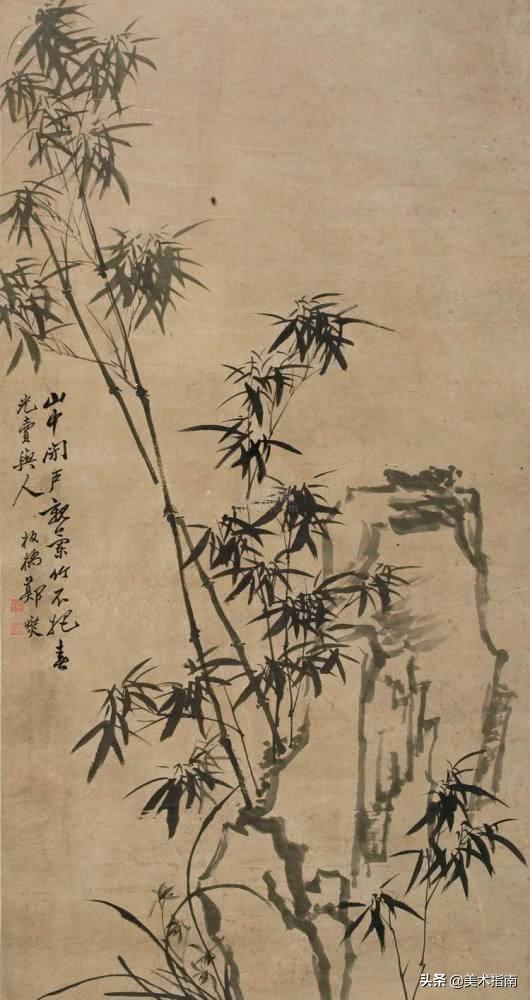 山中閉戶蘭竹不把春
光賣與人 板橋鄭燮
头条 @美术指南